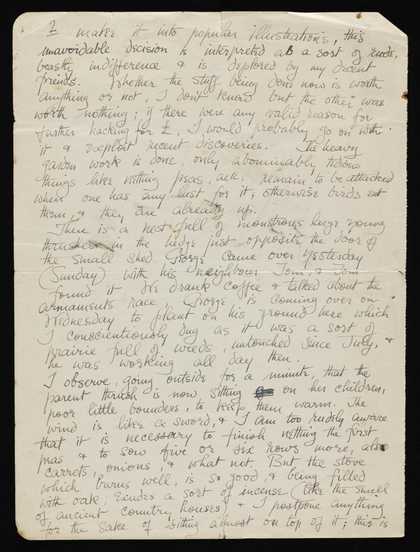 I makes it into popular illustrations, this
unavoidable decision is interpreted as a sort of rude,
beastly indifference & is deplored by my decent
friends. Whether the stuff being done now is worth
anything or not, I don't know but the other was
worth nothing; if there were any valid reason for
further hacking for I, I would probably go on with
it & exploit recent discoveries. The heavy
garden work is done, only abominably tedious
things like netting peas, etc. remain to be attacked
when one has any lust for it; otherwise birds eat
them, & they are already up.
There is a nest full of monstrous huge young
thrushes in the hedge just opposite the door of
the small shed. George came over yesterday
(Sunday) with his neighbour Tom, & Tom
found it. We drank coffee & talked about the
armaments race. George is coming over on
Wednesday to plant on his ground here which
I conscientiously dug as it was a sort of
prairie full of weeds, untouched since July, &
he was working all day then.
I observe, going outside for a minute, that the
parent thrush is now sitting on her children,
poor little bounders, to keep them warm. The
wind is like a sword, & I am too rudely aware
that it is necessary to finish netting the first
peas & to sow five or six rows more, also
carrots, onions, & what not. But the stove
which burns well, is so good, & being filled
with oak, exudes a sort of incense (like the smell
of ancient country houses) & I postpone anything
for the sake of sitting almost on top of it; this is